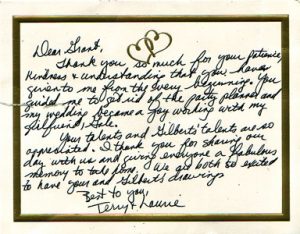 Dear Grant,
Thank you so much for your patience,
kindness & understanding that you have
given to me from the very beginning. You
guided me to get rid of the party planner and
my wedding became a joy working with my
girlfriend, Gale.
Your talents and Gilbert's talents are so
appreciated. I thank you for sharing our
day with us and giving everyone a fabulous
memory to take home. We are both so excited
to have your and Gilbert's drawings
Best to you,
Terry & Laurie